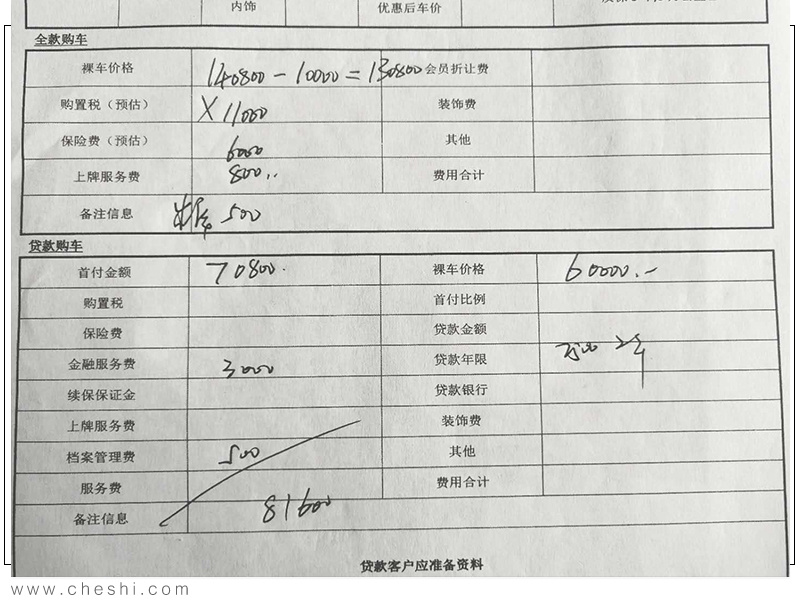 内饰 优惠后车价
全款购车
裸车价格 140800-10000=130800 会员折让费
购置税（预估） X 11000 装饰费
保险费（预估） 6000 其他
上牌服务费 800.. 费用合计
备注信息 500
贷款购车
首付金额 70800. 裸车价格 60000.-
购置税 首付比例
保险费 贷款金额
金融服务费 3000 贷款年限 2年
续保保证金 贷款银行
上牌服务费 装饰费
档案管理费 500 其他
服务费 费用合计
备注信息 81600
贷款客户应准备资料
www.cheshi.com